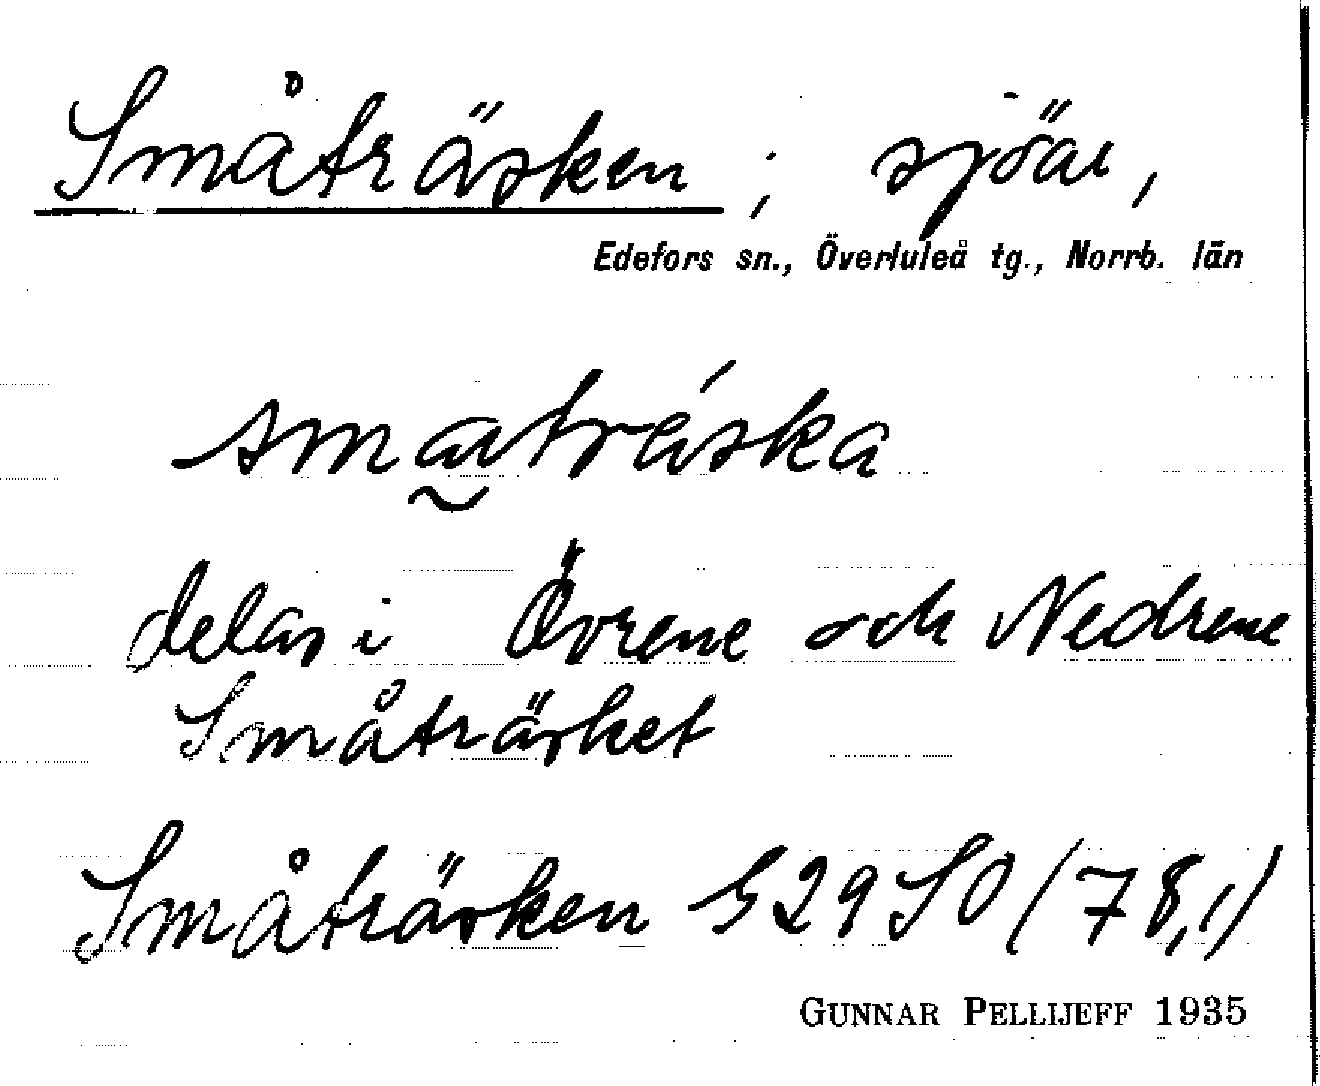 Småträsken; sjöar,
Edefors sn., Överluleå tg., Norrb. län
delas i Övrene och Nedrene
Småträsket
Småträsken S29SO (78,1)
GUNNAR PELLIJEFF 1935